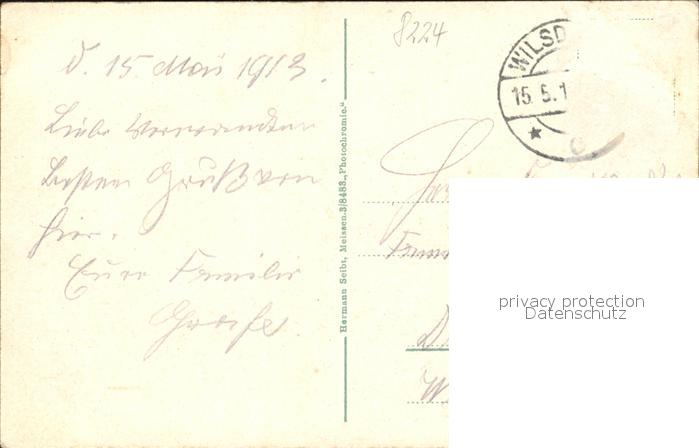 8224
WILSD
15. 5. 1
d. 15 Mai 1913.
Liebe Verwandten
besten Gruß von
hier.
Eure Familie
Hermann Seibt, Meissen. 3/8483. „Photochromie."
privacy protection
Datenschutz